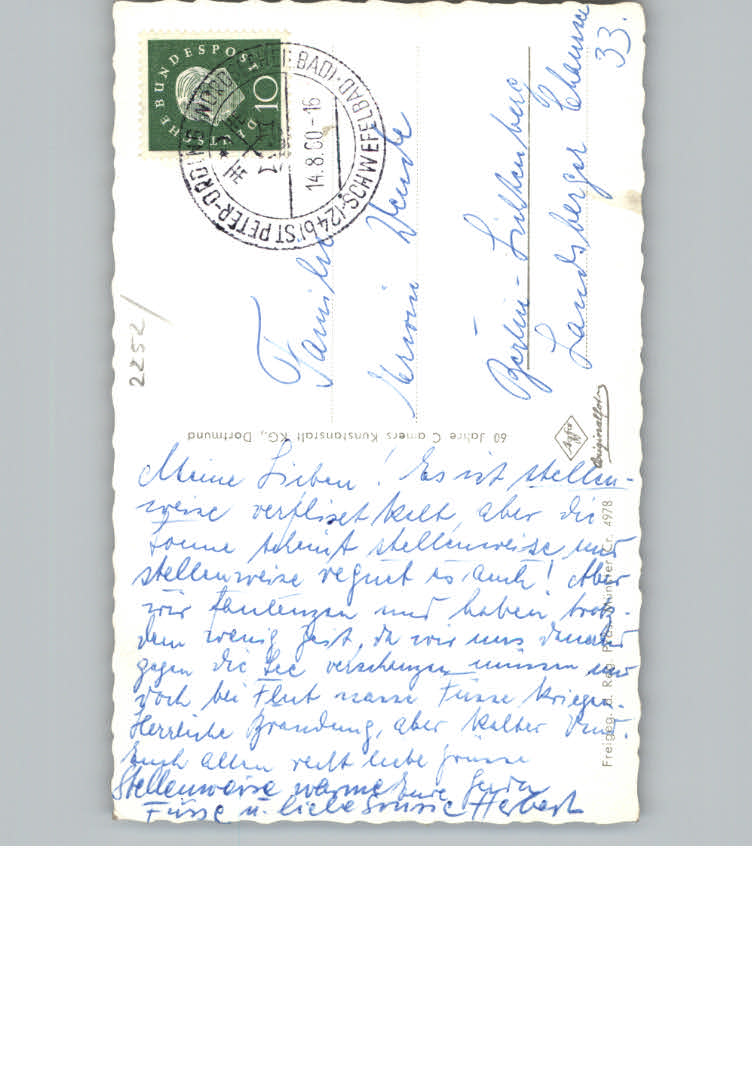 DEUTSCHE BUNDESPOST
10
(24b) ST. PETER-ORDING NORDSEEHEILBAD · SCHWEFELBAD
14.8.60-16
2252/
Familie
Erwin Wende
Berlin-Lichtenberg
Landsberger Chaussee
33.
60 Jahre Cramers Kunstanstalt KG., Dortmund
Agfa
Originalfoto
Meine Lieben! Es ist stellen-
weise verflixt kalt, aber die
Sonne scheint stellenweise und
stellenweise regnet es auch! Aber
wir faulenzen und haben trotz-
dem wenig Zeit, da wir uns dauernd
gegen die See verschanzen müssen und
doch bei Flut nasse Füsse kriegen.
Herrliche Brandung, aber kalter Wind.
Euch allen recht liebe Grüsse
Eure
Stellenweise warme
Füsse u. liebe Grüsse Herbert
Freigeg. d. Reg. Präs. Münster Nr. 4978